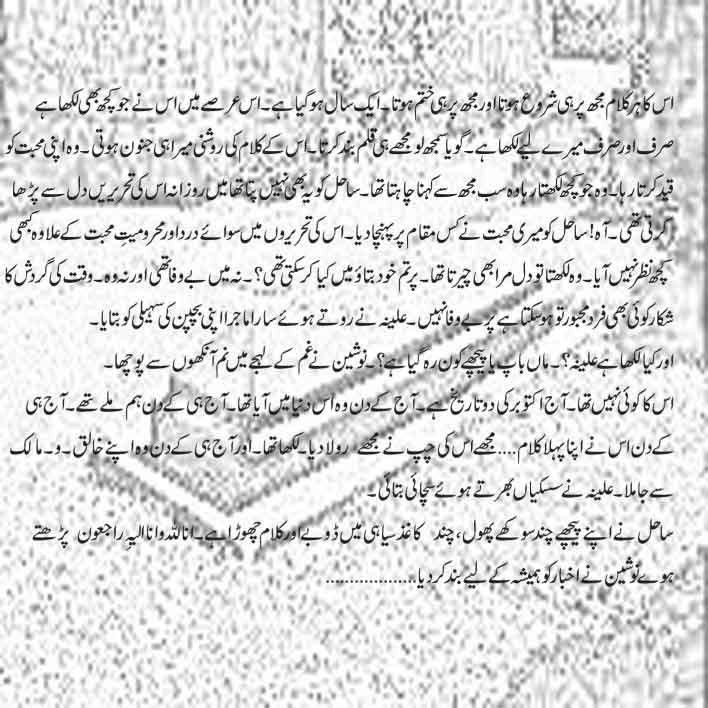 اس کا ہر کلام مجھ پر ہی شروع ہوتا اور مجھ پر ہی ختم ہوتا۔ ایک سال ہو گیا ہے۔ اس عرصے میں اس نے جو کچھ بھی لکھا ہے
صرف اور صرف میرے لیے لکھا ہے۔ گویا سمجھ لو مجھے ہی قلم بند کرتا۔ اس کے کلام کی روشنی میرا ہی جنون ہوتی۔ وہ اپنی محبت کو
قید کرتا رہا۔ وہ جو کچھ لکھتا رہا وہ سب مجھ سے کہنا چاہتا تھا۔ ساحل کو یہ بھی نہیں پتا تھا میں روزانہ اس کی تحریریں دل سے پڑھا
کرتی تھی۔ آہ! ساحل کو میری محبت نے کس مقام پر پہنچا دیا۔ اس کی تحریروں میں سوائے درد اور محرومیتِ محبت کے علاوہ کبھی
کچھ نظر نہیں آیا۔ وہ لکھتا تو دل مرا بھی چیرتا تھا۔ پر تم خود بتاؤ میں کیا کر سکتی تھی؟۔ نہ میں بے وفا تھی اور نہ وہ۔ وقت کی گردش کا
شکار کوئی بھی فرد مجبور تو ہو سکتا ہے پر بے وفا نہیں۔ علینہ نے روتے ہوئے سارا ماجرا اپنی بچپن کی سہیلی کو بتایا۔
اور کیا لکھا ہے علینہ؟۔ ماں باپ یا پیچھے کون رہ گیا ہے؟۔ نوشین نے غم کے لہجے میں نم آنکھوں سے پوچھا۔
اس کا کوئی نہیں تھا۔ آج اکتوبر کی دو تاریخ ہے۔ آج کے دن وہ اس دنیا میں آیا تھا۔ آج ہی کے دن ہم ملے تھے۔ آج ہی
کے دن اس نے اپنا پہلا کلام.... مجھے اس کی چپ نے مجھے رولا دیا۔ لکھا تھا۔ اور آج ہی کے دن وہ اپنے خالق۔و۔مالک
سے جا ملا۔ علینہ نے سسکیاں بھرتے ہوئے سچائی بتائی۔
ساحل نے اپنے پیچھے چند سوکھے پھول، چند کاغذ سیاہی میں ڈوبے اور کلام چھوڑا ہے۔ انا للہ وانا الیہ راجعون پڑھتے
ہوے نوشین نے اخبار کو ہمیشہ کے لیے بند کر دیا...................